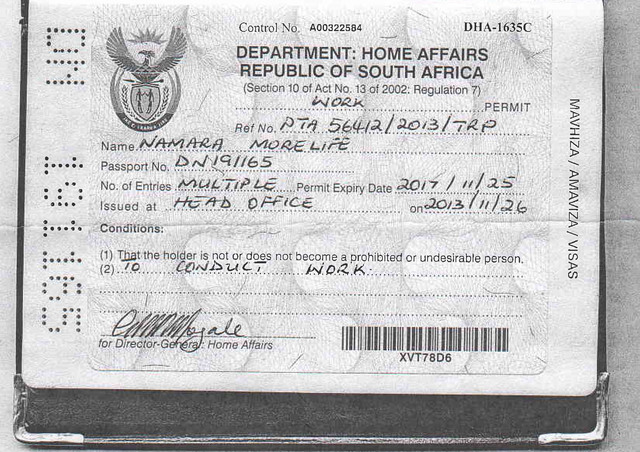 Control No. A00322584 DHA-1635C
DEPARTMENT: HOME AFFAIRS
REPUBLIC OF SOUTH AFRICA
(Section 10 of Act No. 13 of 2002: Regulation 7)
WORK PERMIT
Ref No. PTA 56412/2013/TRP
Name. NAMARA MORELIFE
Passport No. DN191165
No. of Entries MULTIPLE Permit Expiry Date 2017/11/25
Issued at HEAD OFFICE on 2013/11/26
Conditions:
(1) That the holder is not or does not become a prohibited or undesirable person.
(2) TO CONDUCT WORK.
for Director-General: Home Affairs
XVT78D6
MAVHIZA / AMAVIZA / VISAS
DN191165